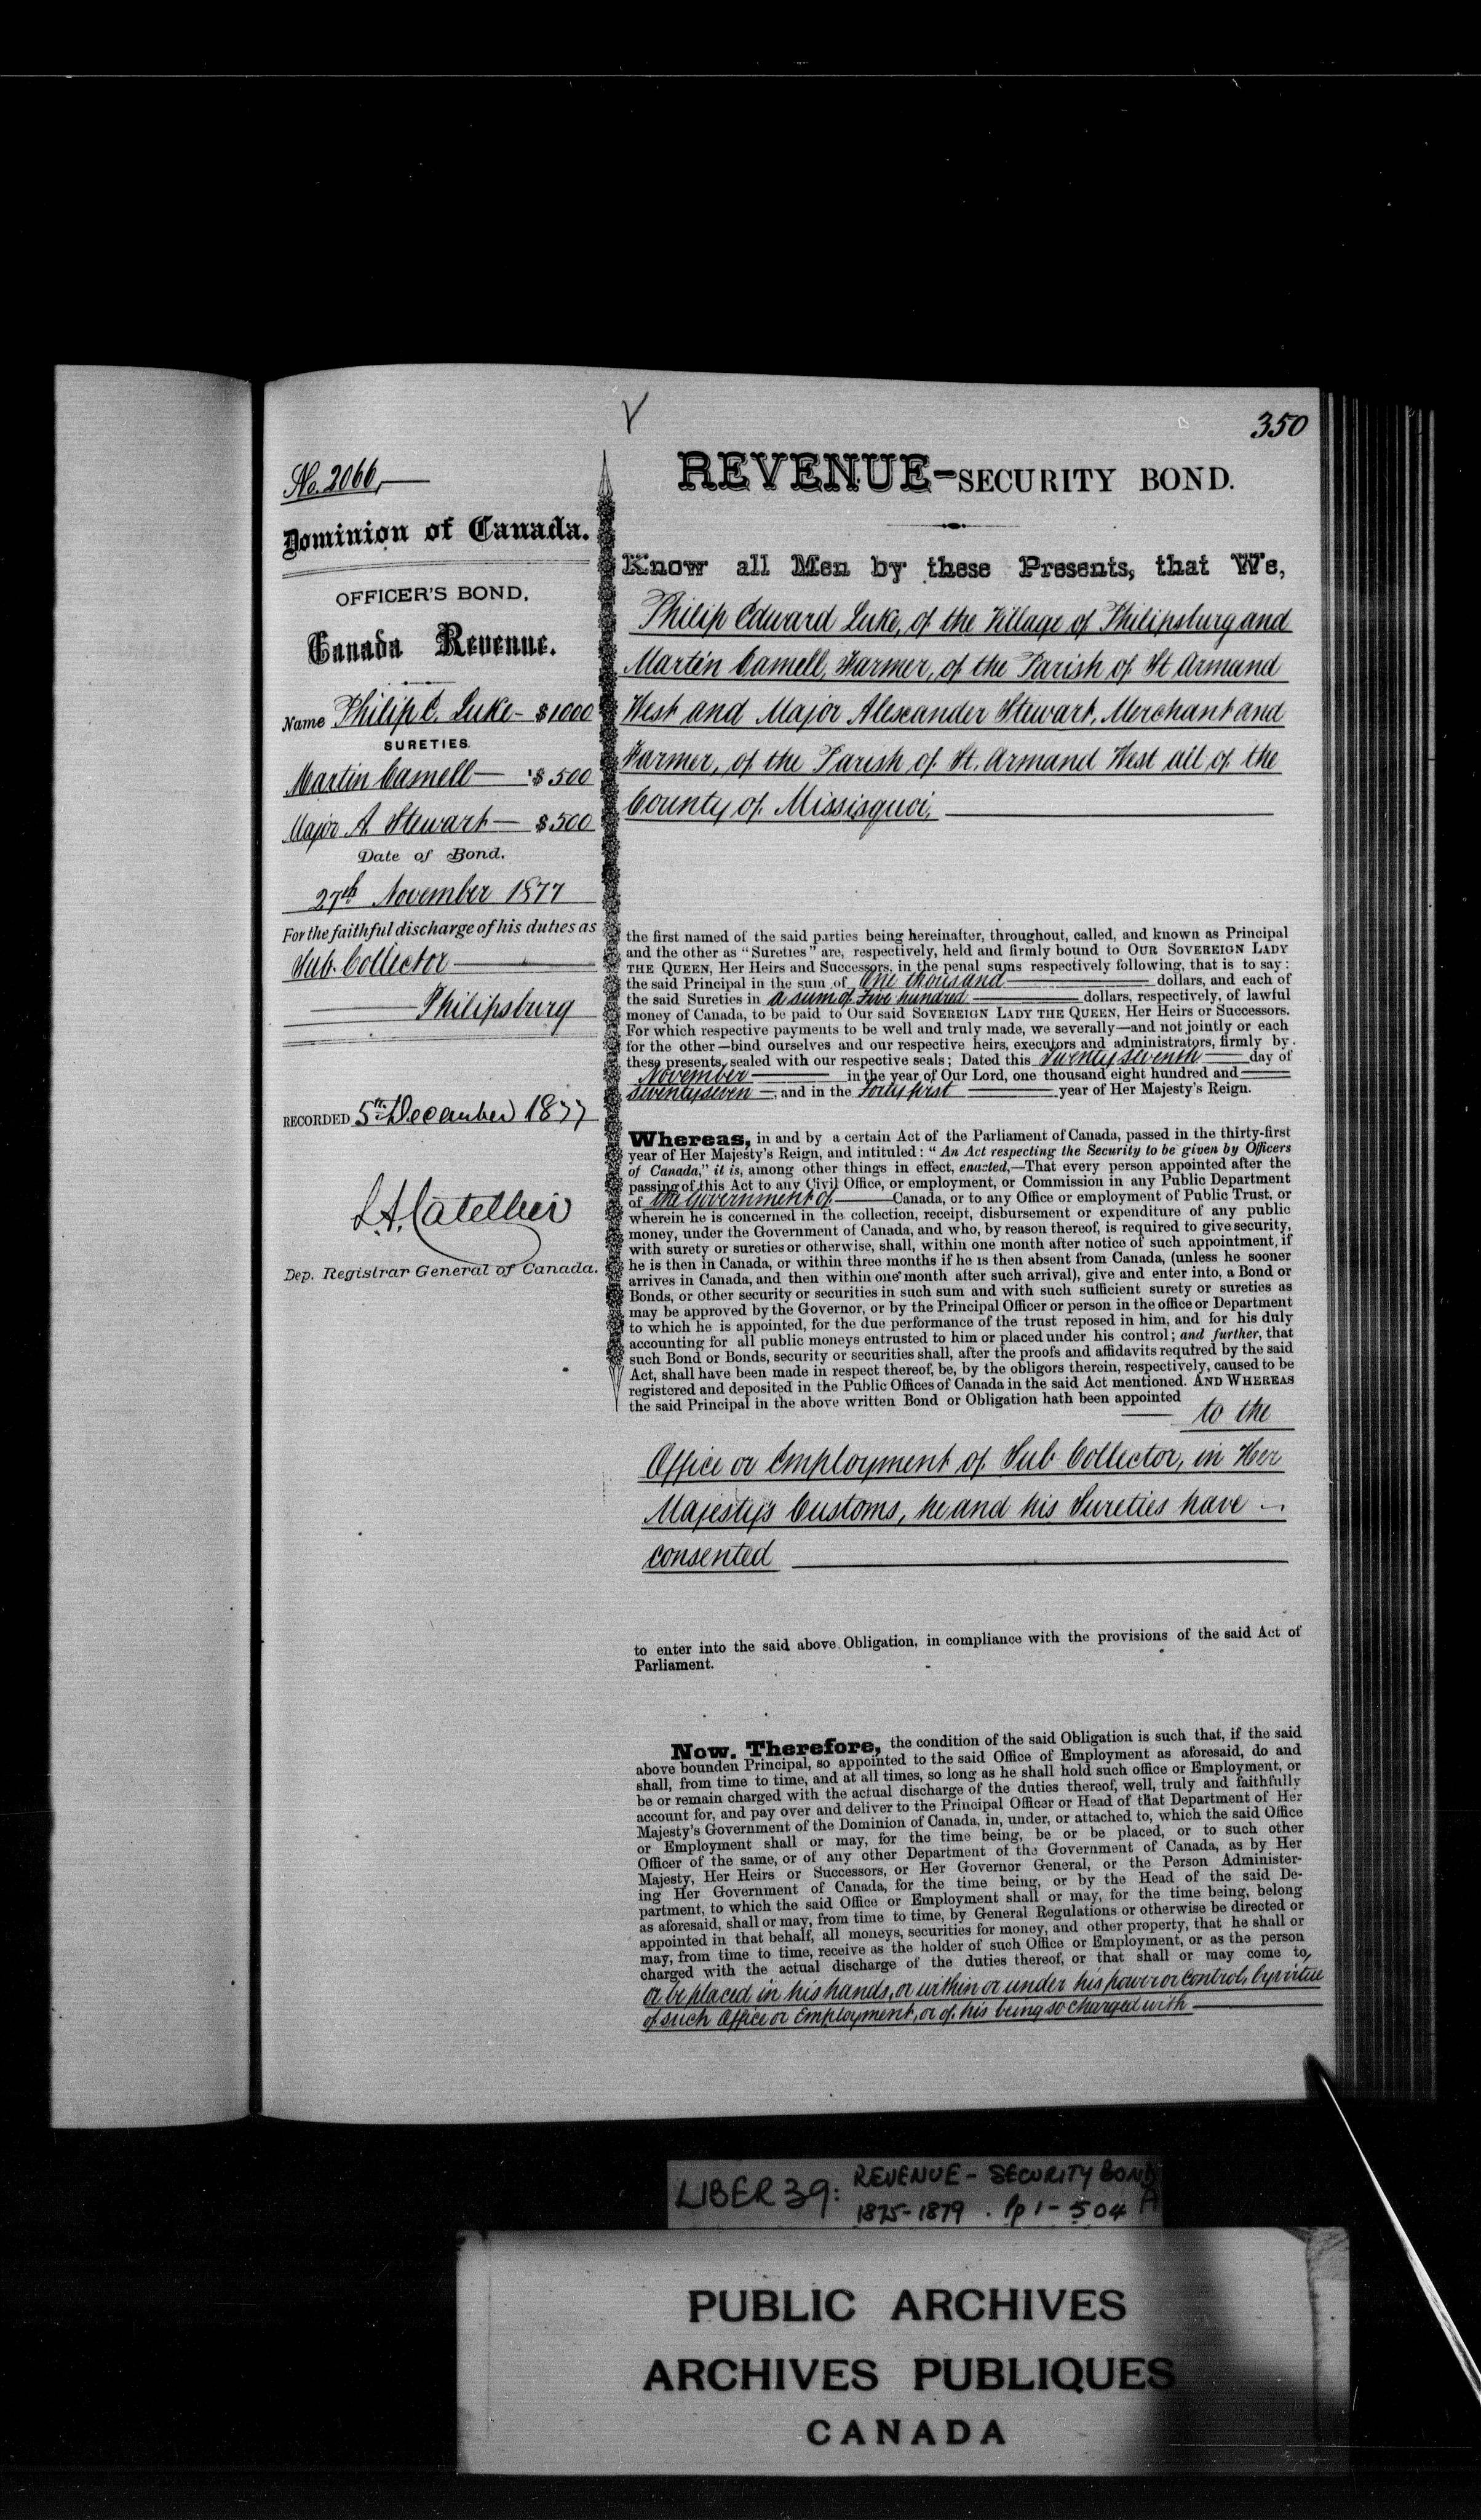 350
No. 2066,
Dominion of Canada.
OFFICER'S BOND,
Canada Revenue.
Name Philip E. Luke - $1000
SURETIES.
Martin Camell — $500
Major A. Stewart — $500
Date of Bond.
27th November 1877
For the faithful discharge of his duties as
Sub. Collector
Philipsburg
RECORDED 5th December 1877
L. A. Catellier
Dep. Registrar General of Canada.
REVENUE-SECURITY BOND.
Know all Men by these Presents, that We,
Philip Edward Luke, of the Village of Philipsburg and
Martin Camell, Farmer, of the Parish of St Armand
West and Major Alexander Stewart, Merchant and
Farmer, of the Parish of St. Armand West all of the
County of Missisquoi,
the first named of the said parties being hereinafter, throughout, called, and known as Principal
and the other as "Sureties" are, respectively, held and firmly bound to OUR SOVEREIGN LADY
THE QUEEN, Her Heirs and Successors, in the penal sums respectively following, that is to say:
the said Principal in the sum of One thousand dollars, and each of
the said Sureties in a sum of Five hundred dollars, respectively, of lawful
money of Canada, to be paid to Our said SOVEREIGN LADY THE QUEEN, Her Heirs or Successors.
For which respective payments to be well and truly made, we severally—and not jointly or each
for the other—bind ourselves and our respective heirs, executors and administrators, firmly by
these presents, sealed with our respective seals; Dated this Twenty seventh day of
November in the year of Our Lord, one thousand eight hundred and
seventy seven, and in the Forty first year of Her Majesty's Reign.
Whereas, in and by a certain Act of the Parliament of Canada, passed in the thirty-first
year of Her Majesty's Reign, and intituled: "An Act respecting the Security to be given by Officers
of Canada," it is, among other things in effect, enacted,—That every person appointed after the
passing of this Act to any Civil Office, or employment, or Commission in any Public Department
of the Government of Canada, or to any Office or employment of Public Trust, or
wherein he is concerned in the collection, receipt, disbursement or expenditure of any public
money, under the Government of Canada, and who, by reason thereof, is required to give security,
with surety or sureties or otherwise, shall, within one month after notice of such appointment, if
he is then in Canada, or within three months if he is then absent from Canada, (unless he sooner
arrives in Canada, and then within one month after such arrival), give and enter into, a Bond or
Bonds, or other security or securities in such sum and with such sufficient surety or sureties as
may be approved by the Governor, or by the Principal Officer or person in the office or Department
to which he is appointed, for the due performance of the trust reposed in him, and for his duly
accounting for all public moneys entrusted to him or placed under his control; and further, that
such Bond or Bonds, security or securities shall, after the proofs and affidavits required by the said
Act, shall have been made in respect thereof, be, by the obligors therein, respectively, caused to be
registered and deposited in the Public Offices of Canada in the said Act mentioned. AND WHEREAS
the said Principal in the above written Bond or Obligation hath been appointed
to the
Office or Employment of Sub Collector, in Her
Majesty's Customs, he and his Sureties have
consented
to enter into the said above Obligation, in compliance with the provisions of the said Act of
Parliament.
Now, Therefore, the condition of the said Obligation is such that, if the said
above bounden Principal, so appointed to the said Office of Employment as aforesaid, do and
shall, from time to time, and at all times, so long as he shall hold such office or Employment, or
be or remain charged with the actual discharge of the duties thereof, well, truly and faithfully
account for, and pay over and deliver to the Principal Officer or Head of that Department of Her
Majesty's Government of the Dominion of Canada, in, under, or attached to, which the said Office
or Employment shall or may, for the time being, be or be placed, or to such other
Officer of the same, or of any other Department of the Government of Canada, as by Her
Majesty, Her Heirs or Successors, or Her Governor General, or the Person Administer-
ing Her Government of Canada, for the time being, or by the Head of the said De-
partment, to which the said Office or Employment shall or may, for the time being, belong
as aforesaid, shall or may, from time to time, by General Regulations or otherwise be directed or
appointed in that behalf, all moneys, securities for money, and other property, that he shall or
may, from time to time, receive as the holder of such Office or Employment, or as the person
charged with the actual discharge of the duties thereof, or that shall or may come to,
or be placed in his hands, or within or under his power or control, by virtue
of such Office or Employment, or of his being so charged with
LIBER 39: REVENUE - SECURITY BOND
1875-1879 . Pp 1 - 504 A
PUBLIC ARCHIVES
ARCHIVES PUBLIQUES
CANADA